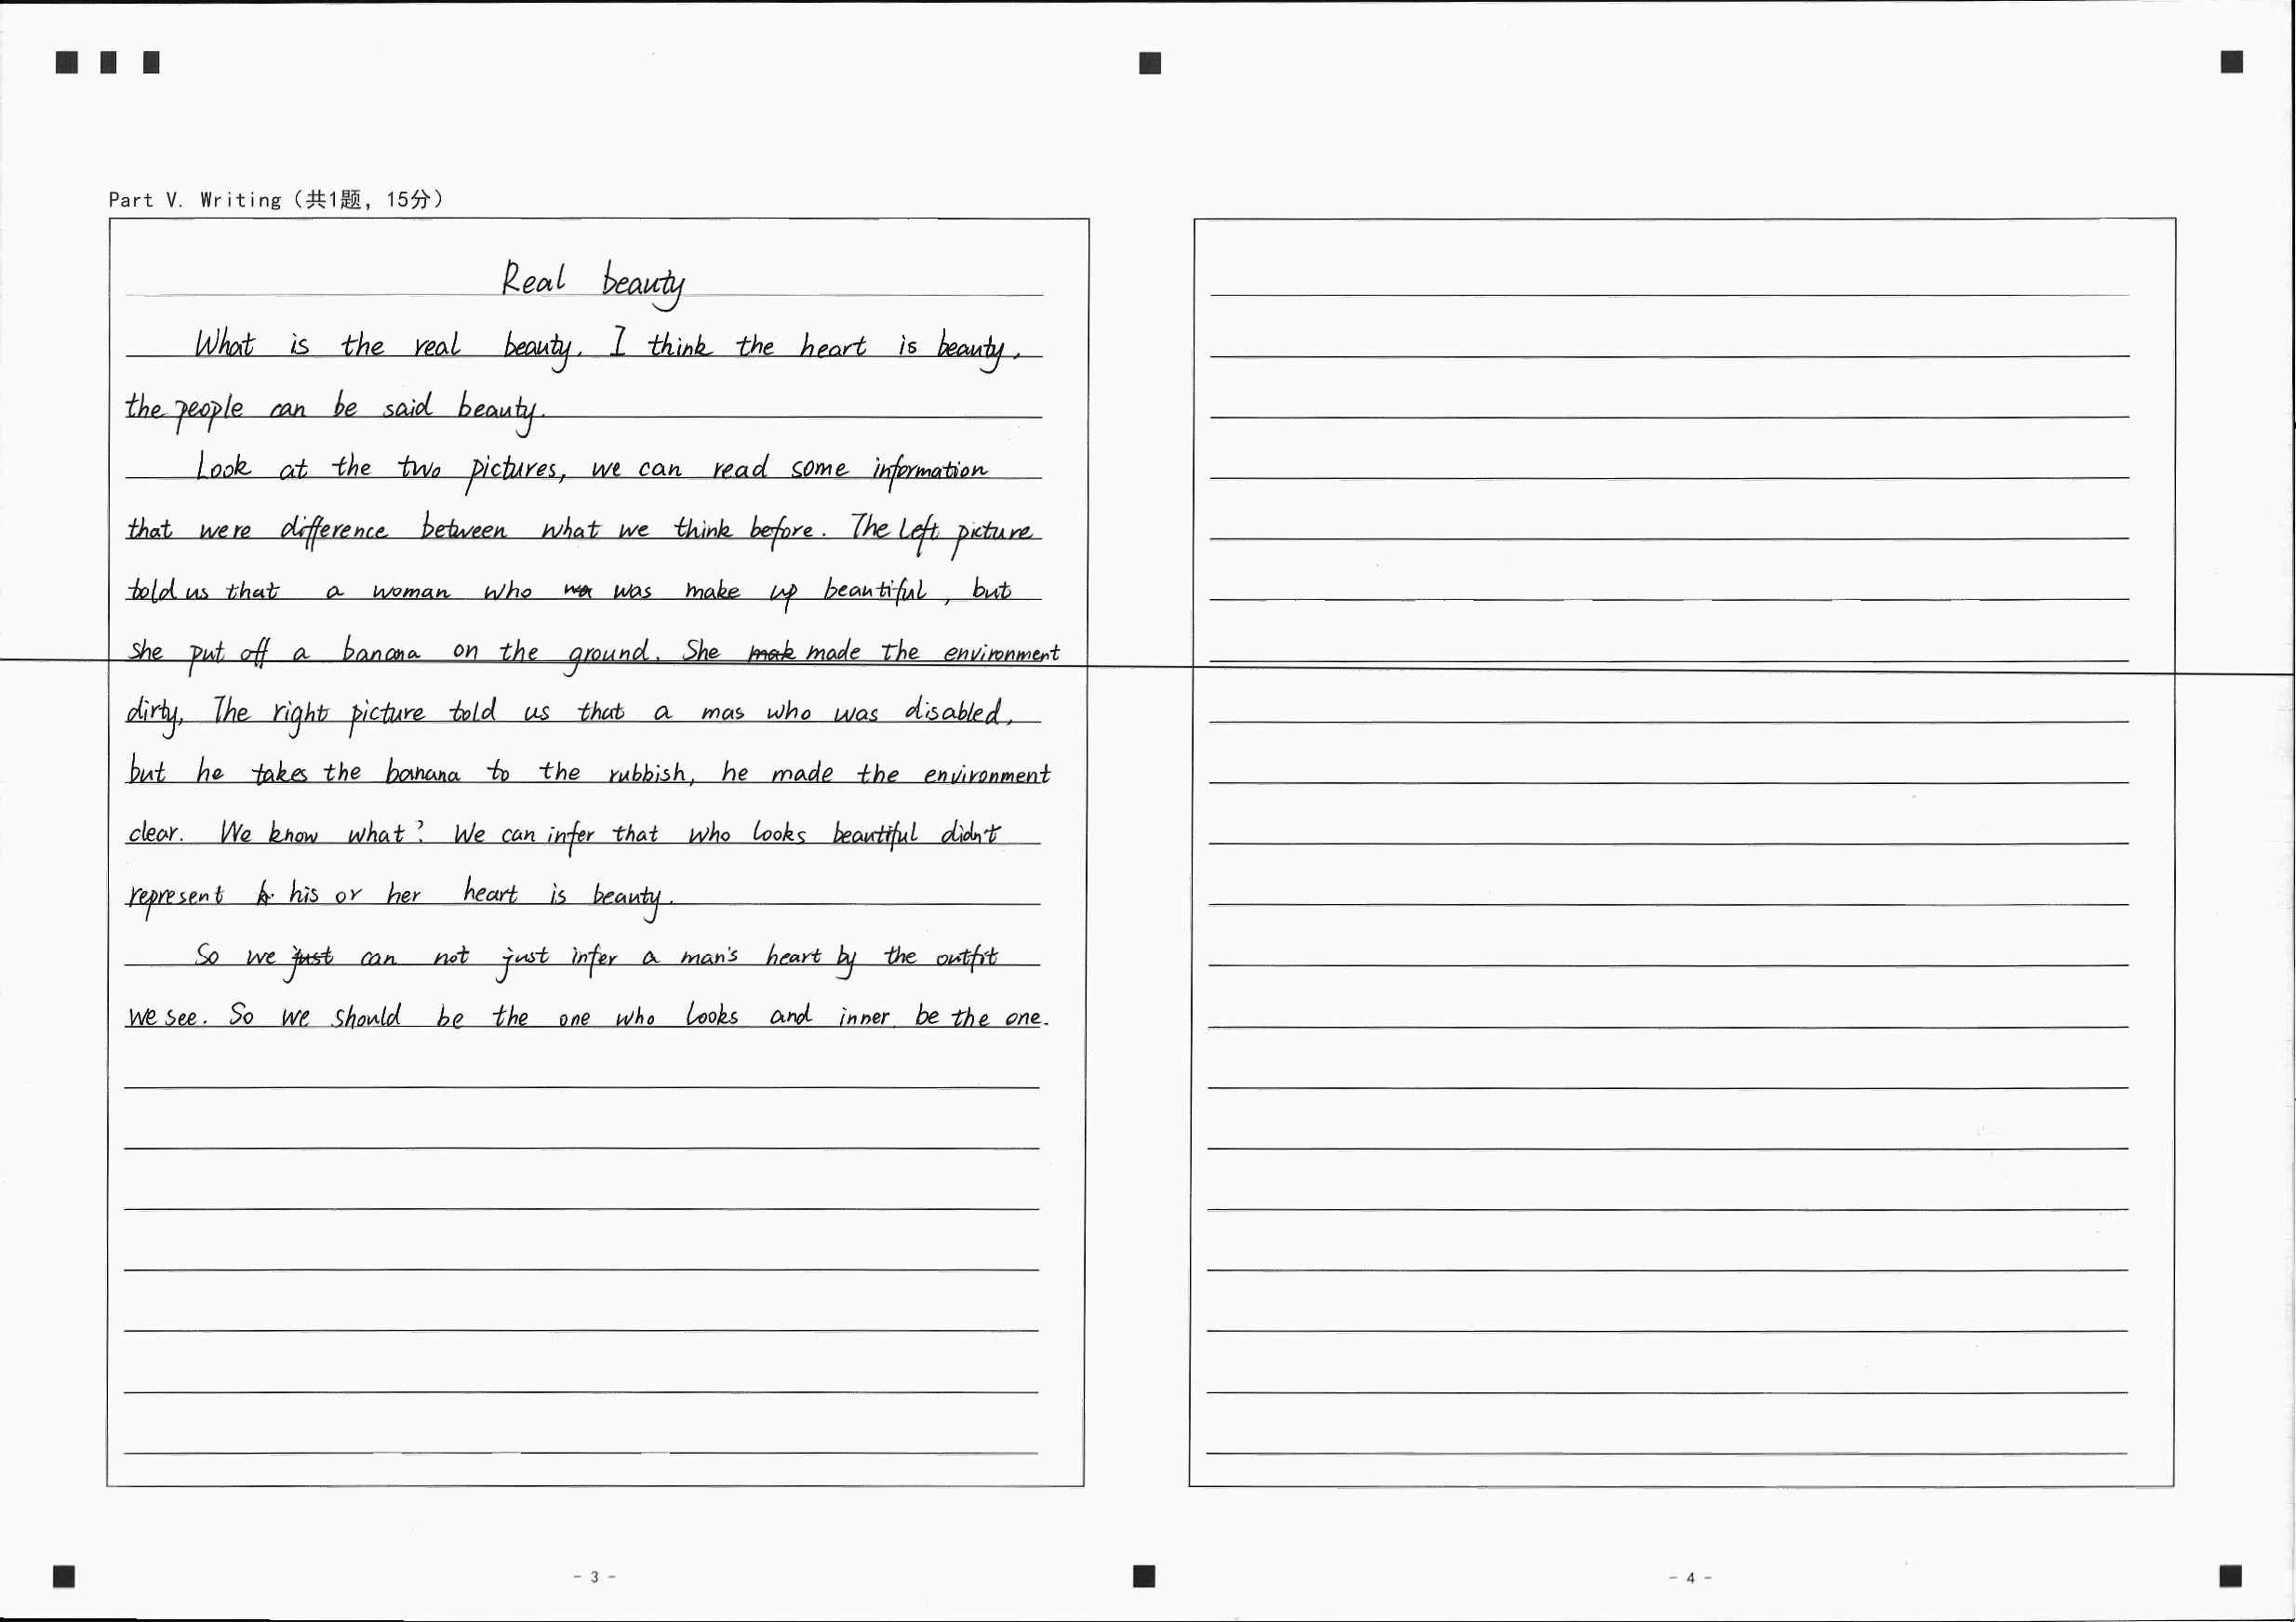 Part V. Writing（共1题，15分）
Real beauty
What is the real beauty. I think the heart is beauty,
the people can be said beauty.
Look at the two pictures, we can read some information
that were difference between what we think before. The left picture
told us that a woman who wa was make up beautiful, but
she put off a banana on the ground. She mak made the environment
dirty, The right picture told us that a mas who was disabled,
but he takes the banana to the rubbish, he made the environment
clear. We know what? We can infer that who looks beautiful didn't
represent h his or her heart is beauty.
So we just can not just infer a man's heart by the outfit
we see. So we should be the one who looks and inner be the one.
- 3 -
- 4 -